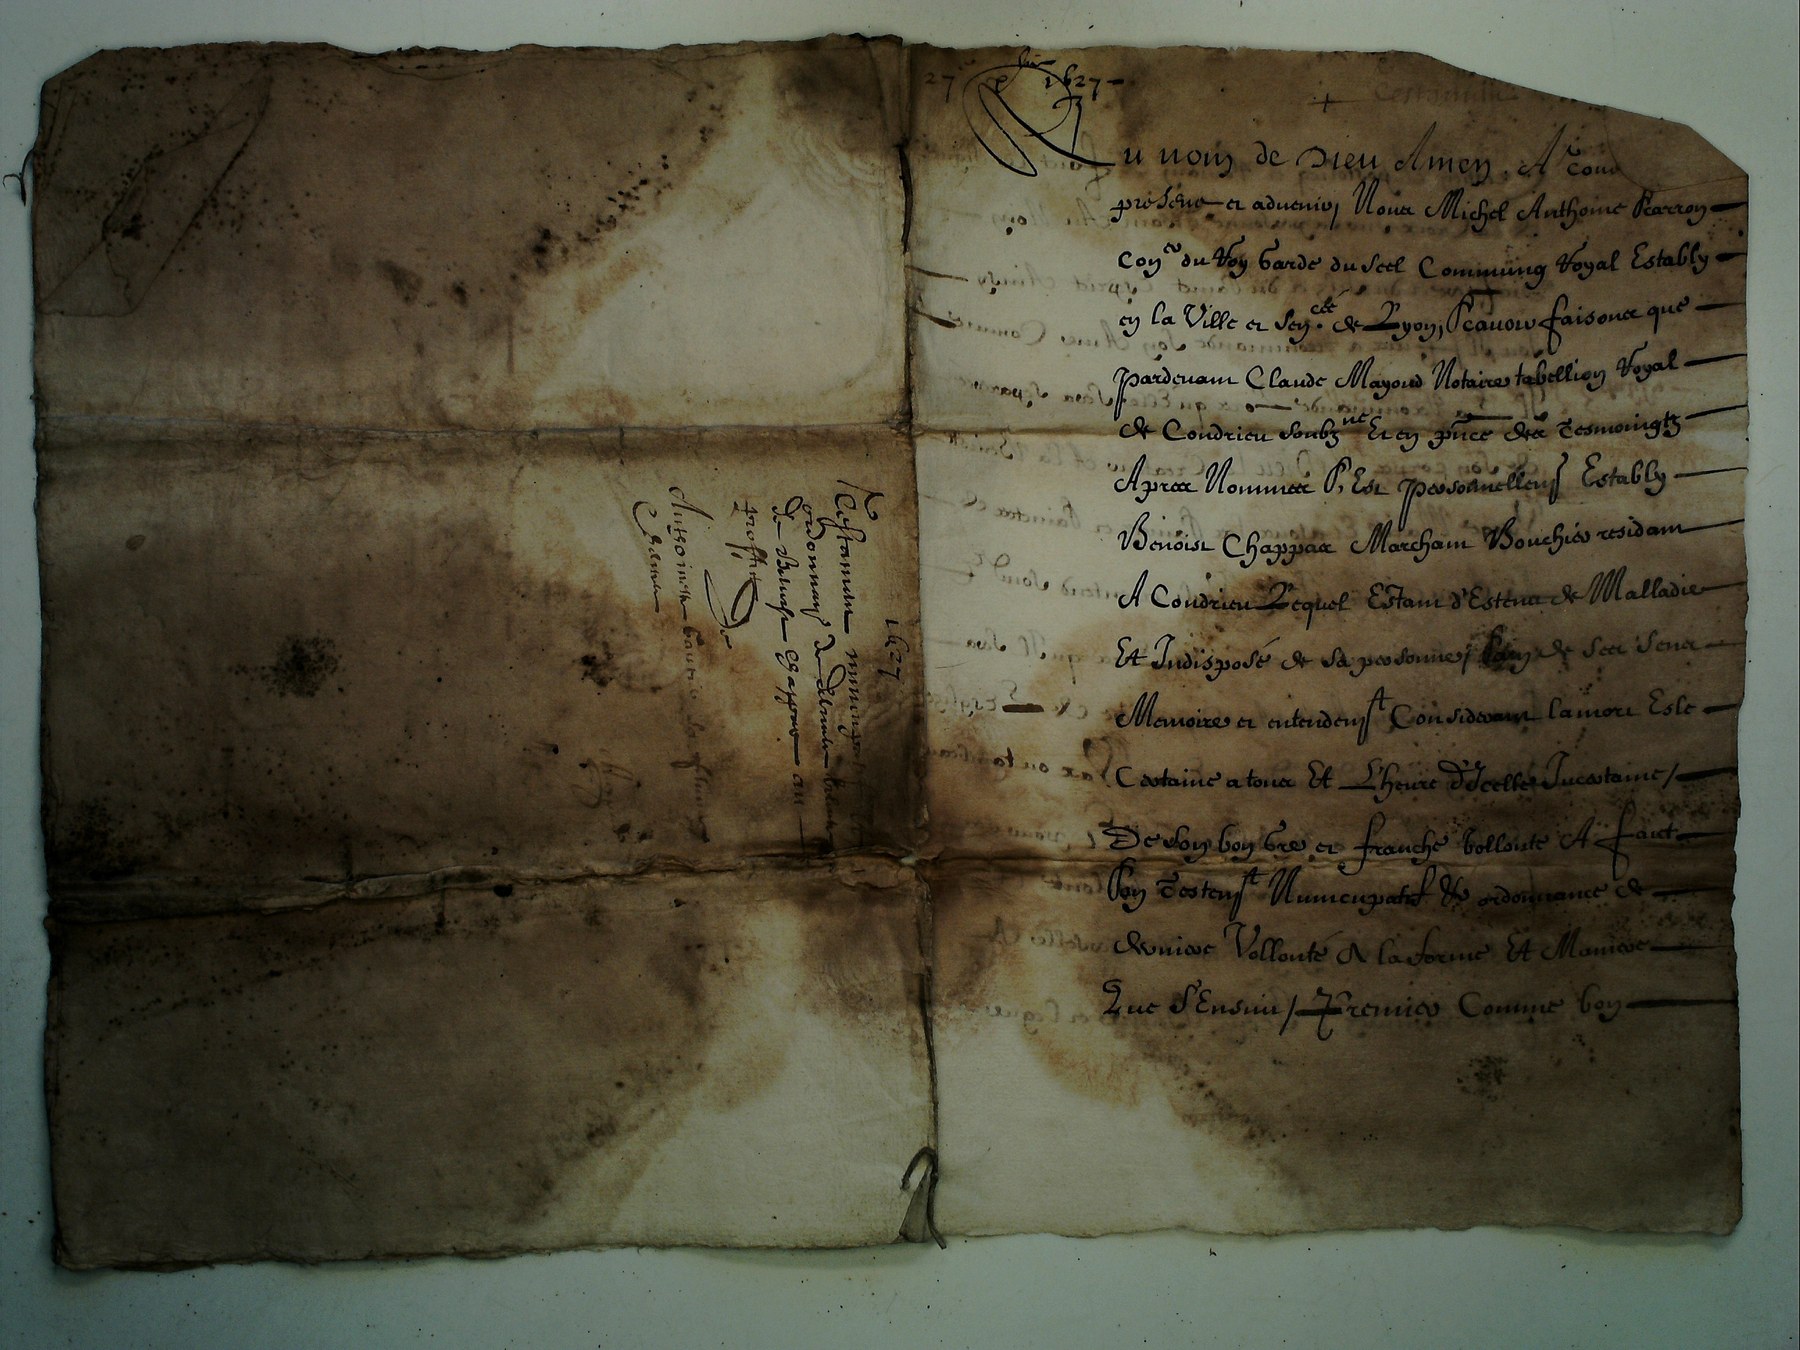 27 1627
Au nom de Dieu Amen. A tous
presens et advenir, Nous Michel Anthoine Karron
Con.er du Roy Garde du Scel Commung Royal Estably
en la Ville et Sen.cée de Lyon, Scavoir faisons que
Pardevant Claude Mayoud Notaire tabellion Royal
de Condrieu soubz.né Et en pñce des Tesmoingtz
Apres Nommes S, Est personnellem.t Estably
Benoist Chappas Marchant Bouchier residant
A Condrieu Lequel Estant d'Estenu de Malladie
Et Indisposé de sa personne, Sain de ses sens
Memoire et entendem.t Considerant la mort Estre
Certaine a tous Et L'heure d'Icelle Incertaine,
De son bon Gre et franche vollonte A faict
Son Testem.t Nuncupatif & ordonnance de
derniere Vollonté A la forme Et Maniere
Que S'Ensuit, Premier Comme bon
1627
Testament nuncupatif
ordonnance de derniere volonté
de Benoist Chappas au
proffit de
Anthoinette